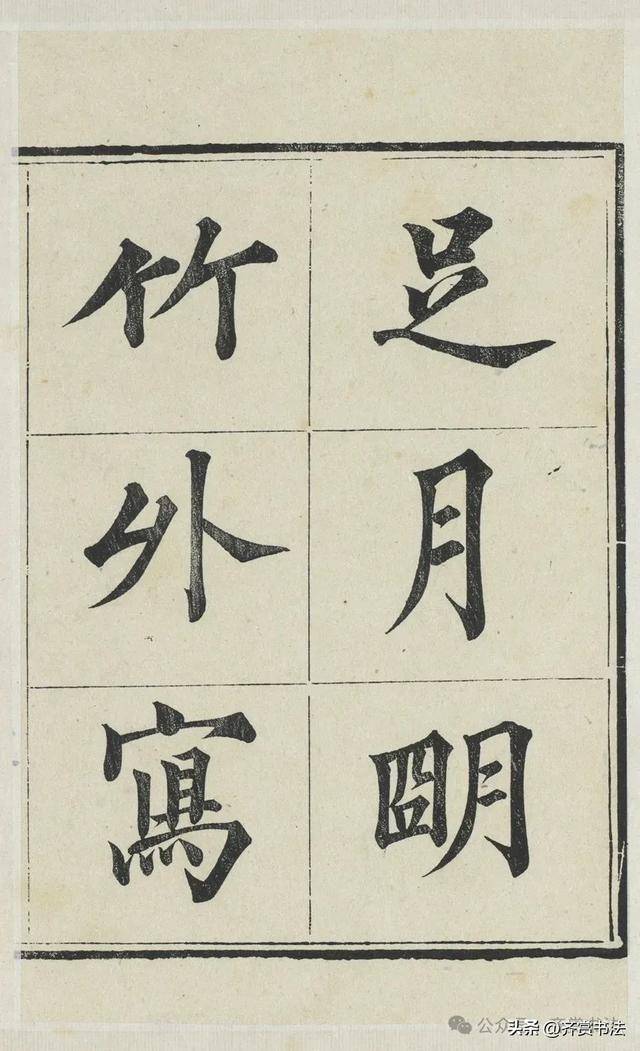 足月朙
竹外寫
头条 @齐赏书法